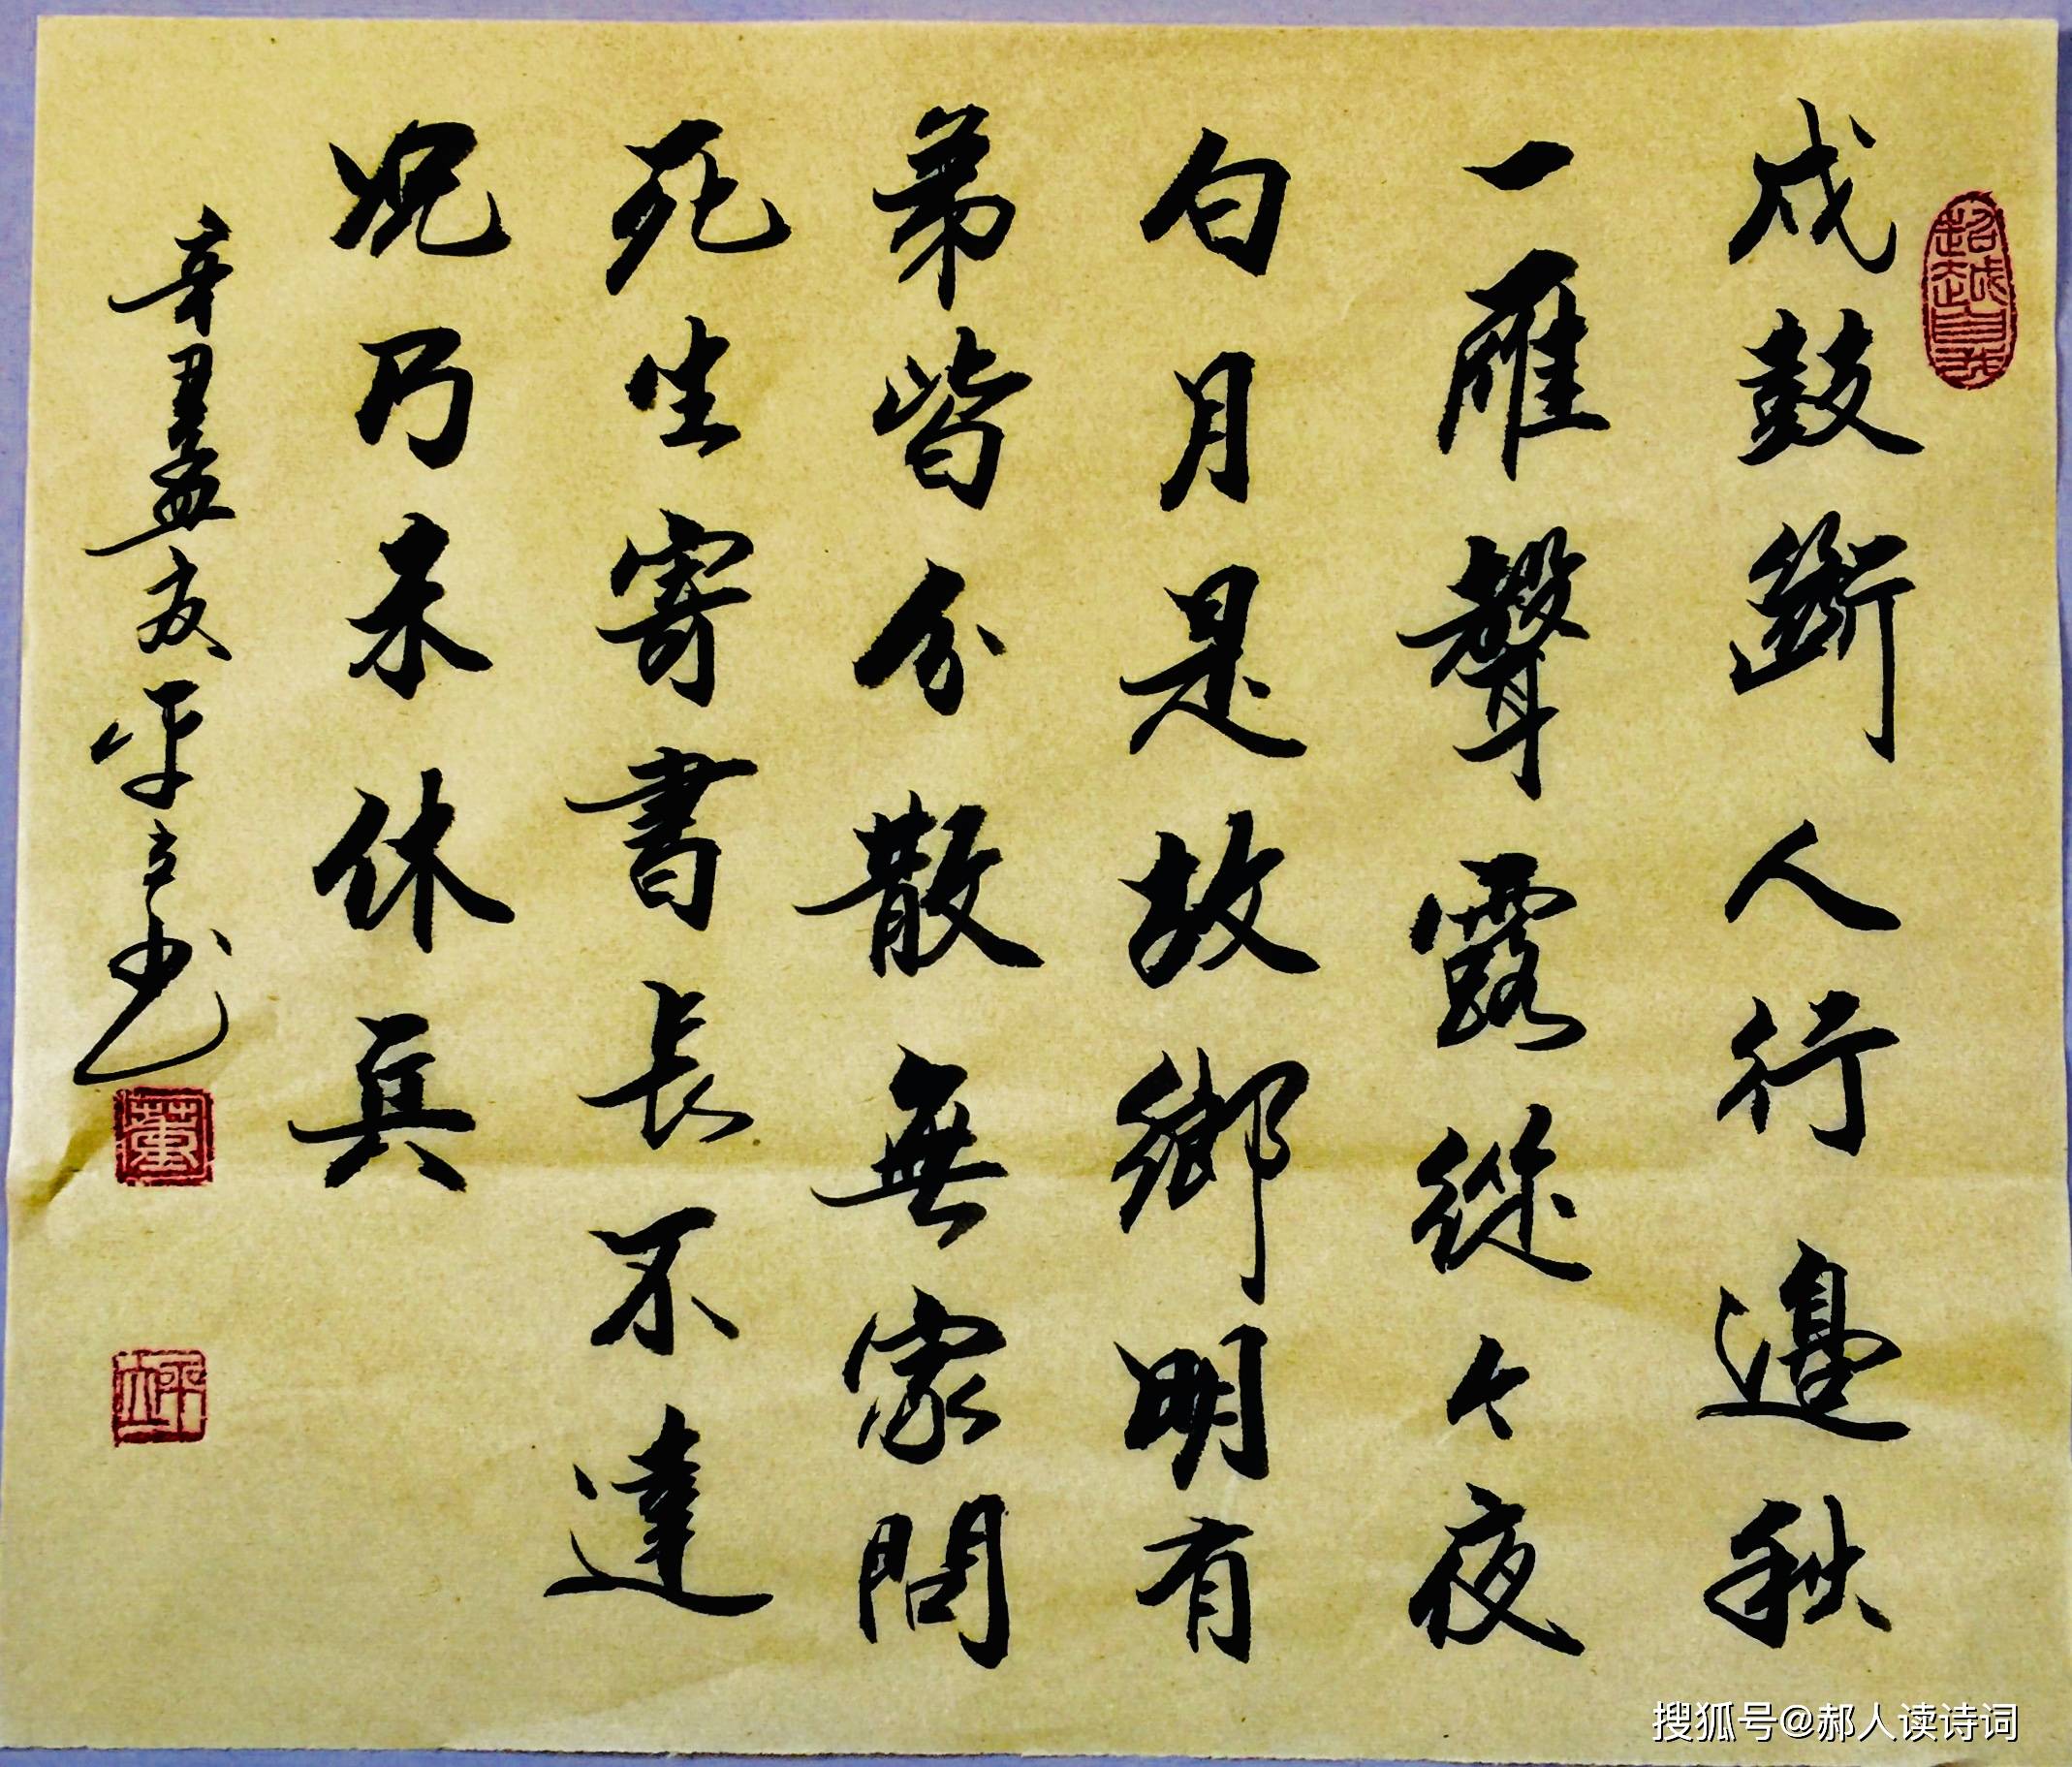 超越自我
戍鼓斷人行邊秋
一雁聲露從今夜
白月是故鄉明有
弟皆分散無家問
死生寄書長不達
况乃未休兵
辛丑孟夏平立书
董
搜狐号@郝人读诗词